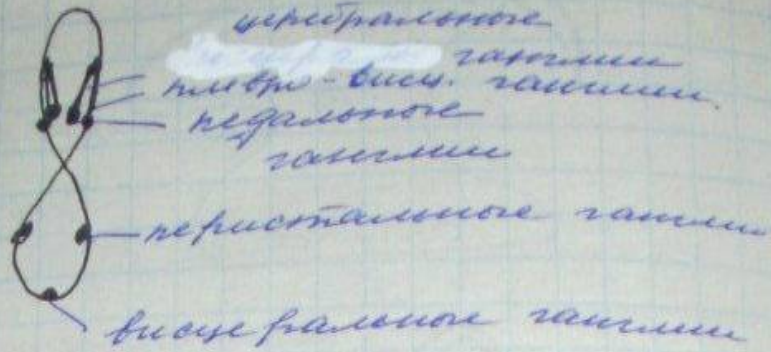 церебральные
ганглии
плевро-висц. ганглии.
педальные
ганглии
перистальные ганглии
висцеральные ганглии